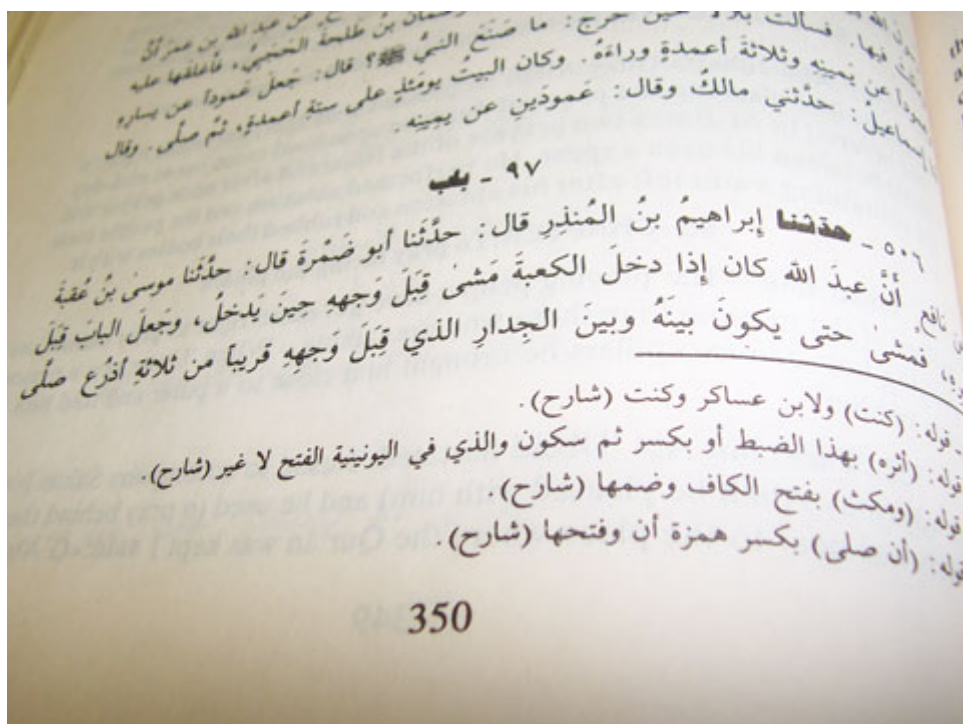 عن عبد الله بن عمر أنَّ
بنُ طلحةَ الحَجَبيُّ، فأغلقها عليه
فيها. فسألت بلالاً حين خرج: ما صَنَعَ النبيُّ ﷺ؟ قال: جَعلَ عَموداً عن يساره
عن يَمينِه وثلاثةَ أعمدةٍ وراءَهُ. وكان البيتُ يومَئذٍ على ستةِ أعمدةٍ، ثمَّ صلَّى. وقال
حدَّثني مالكٌ وقال: عَمودَينِ عن يمينِه.
٩٧ - باب
٥٠٦ - حدثنا إبراهيمُ بنُ المُنذرِ قال: حدَّثَنا أبو ضَمْرةَ قال: حدَّثَنا موسى بنُ عُقبةَ
نافعٍ أنَّ عبدَ الله كان إِذا دخلَ الكعبةَ مَشى قِبَلَ وَجههِ حِينَ يَدخلُ، وجَعلَ البابَ قِبَلَ
فمشى حتى يكونَ بينَهُ وبينَ الجِدارِ الذي قِبَلَ وَجههِ قريباً من ثلاثةِ أذرُعٍ صلَّى
قوله: (كنت) ولابن عساكر وكنت (شارح).
قوله: (أثره) بهذا الضبط أو بكسر ثم سكون والذي في اليونينية الفتح لا غير (شارح).
قوله: (ومكث) بفتح الكاف وضمها (شارح).
قوله: (أن صلى) بكسر همزة أن وفتحها (شارح).
350